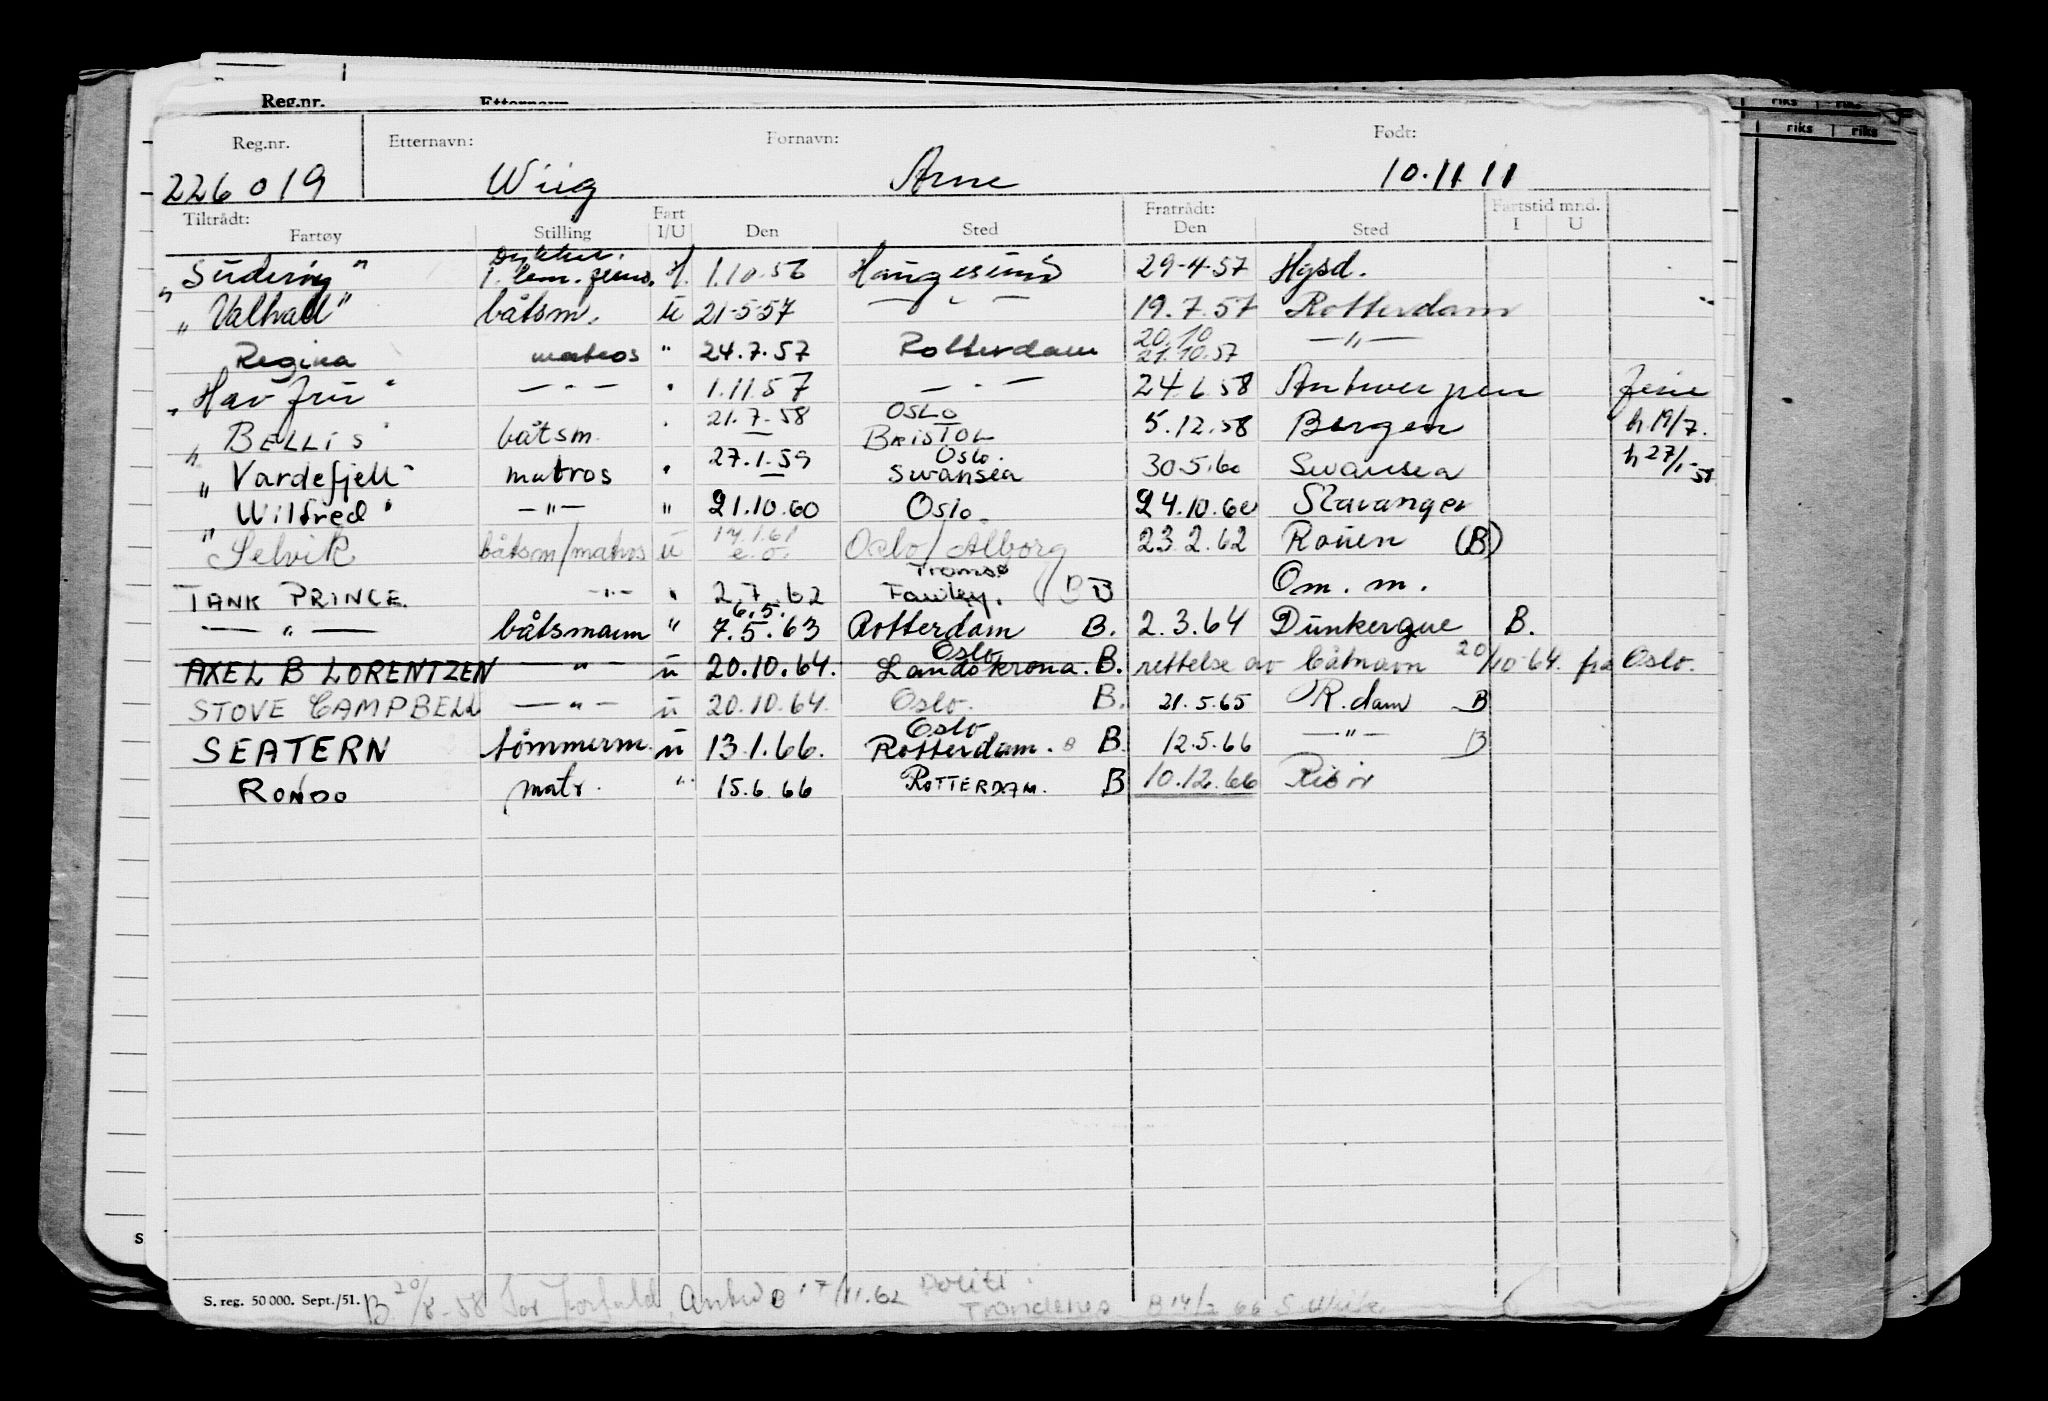 Reg.nr. Etternavn
riks riks
riks riks
Reg.nr. Etternavn: Fornavn: Født:
226019 Wiig Arne 10.11 11
Tiltrådt: Fartøy Stilling Fart I/U Den Sted Fratrådt: Den Sted Fartstid mnd. I U
"Suderøy" H. 1.10.56 Haugesund 29-4-57 Hgsd.
"Valhall" båtsm. u 21-5-57 — " — 19.7.57 Rotterdam
Regina matros " 24.7.57 Rotterdam 20.10 21.10.57 — " —
"Havfru" — " — " 1.11.57 — " — 24.6.58 Antwerpen ferie
"BELLIS" båtsm. " 21.7.58 OSLO BRISTOL 5.12.58 Bergen h 19/7.
"Vardefjell" matros " 27.1.59 Oslo. Swansea 30.5.60 Swansea h 27/1-59
"Wilfred" — " — " 21.10.60 Oslo. 24.10.60 Stavanger
Selvik båtsm/matros u 17.1.61 e.o. Oslo/Alborg 23.2.62 Rouen (B)
TANK PRINCE — " — " 2.7.62 Tromsø Fawley. B Om. m.
— " — båtsmann " 6.5. 7.5.63 Rotterdam B. 2.3.64 Dunkerque B.
AXEL B LORENTZEN — " — u 20.10.64. Oslo Landskrona. B. rettelse av båtnavn 20/10-64. fra Oslo.
STOVE CAMPBELL — " — u 20.10.64. Oslo. B. 21.5.65 R.dam B
SEATERN tømmerm. u 13.1.66. Oslo Rotterdam. B B 12.5.66 — " — B
RONDO matr. " 15.6.66 ROTTERDAM. B 10.12.66 Risør
S. reg. 50 000. Sept./51. B 20/8-58 17/11.62 Politi
Trondenes B 14/2 66